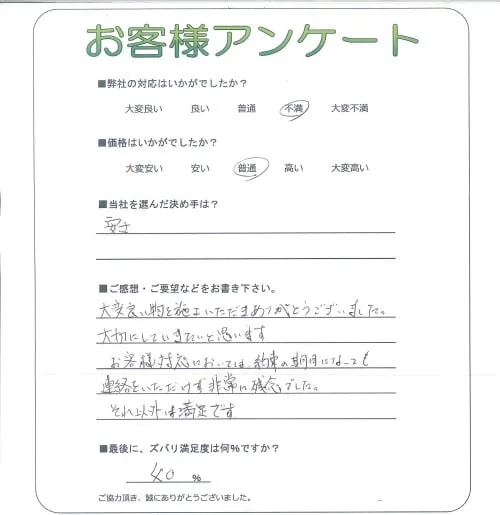 お客様アンケート
■弊社の対応はいかがでしたか？
大変良い 良い 普通 不満 大変不満
■価格はいかがでしたか？
大変安い 安い 普通 高い 大変高い
■当社を選んだ決め手は？
安さ
■ご感想・ご要望などをお書き下さい。
大変良い物を施工いただきありがとうございました。
大切にしていきたいと思います
お客様対応においては、約束の期日になっても
連絡をいただけず非常に残念でした。
それ以外は満足です
■最後に、ズバリ満足度は何%ですか？
40 %
ご協力頂き、誠にありがとうございました。